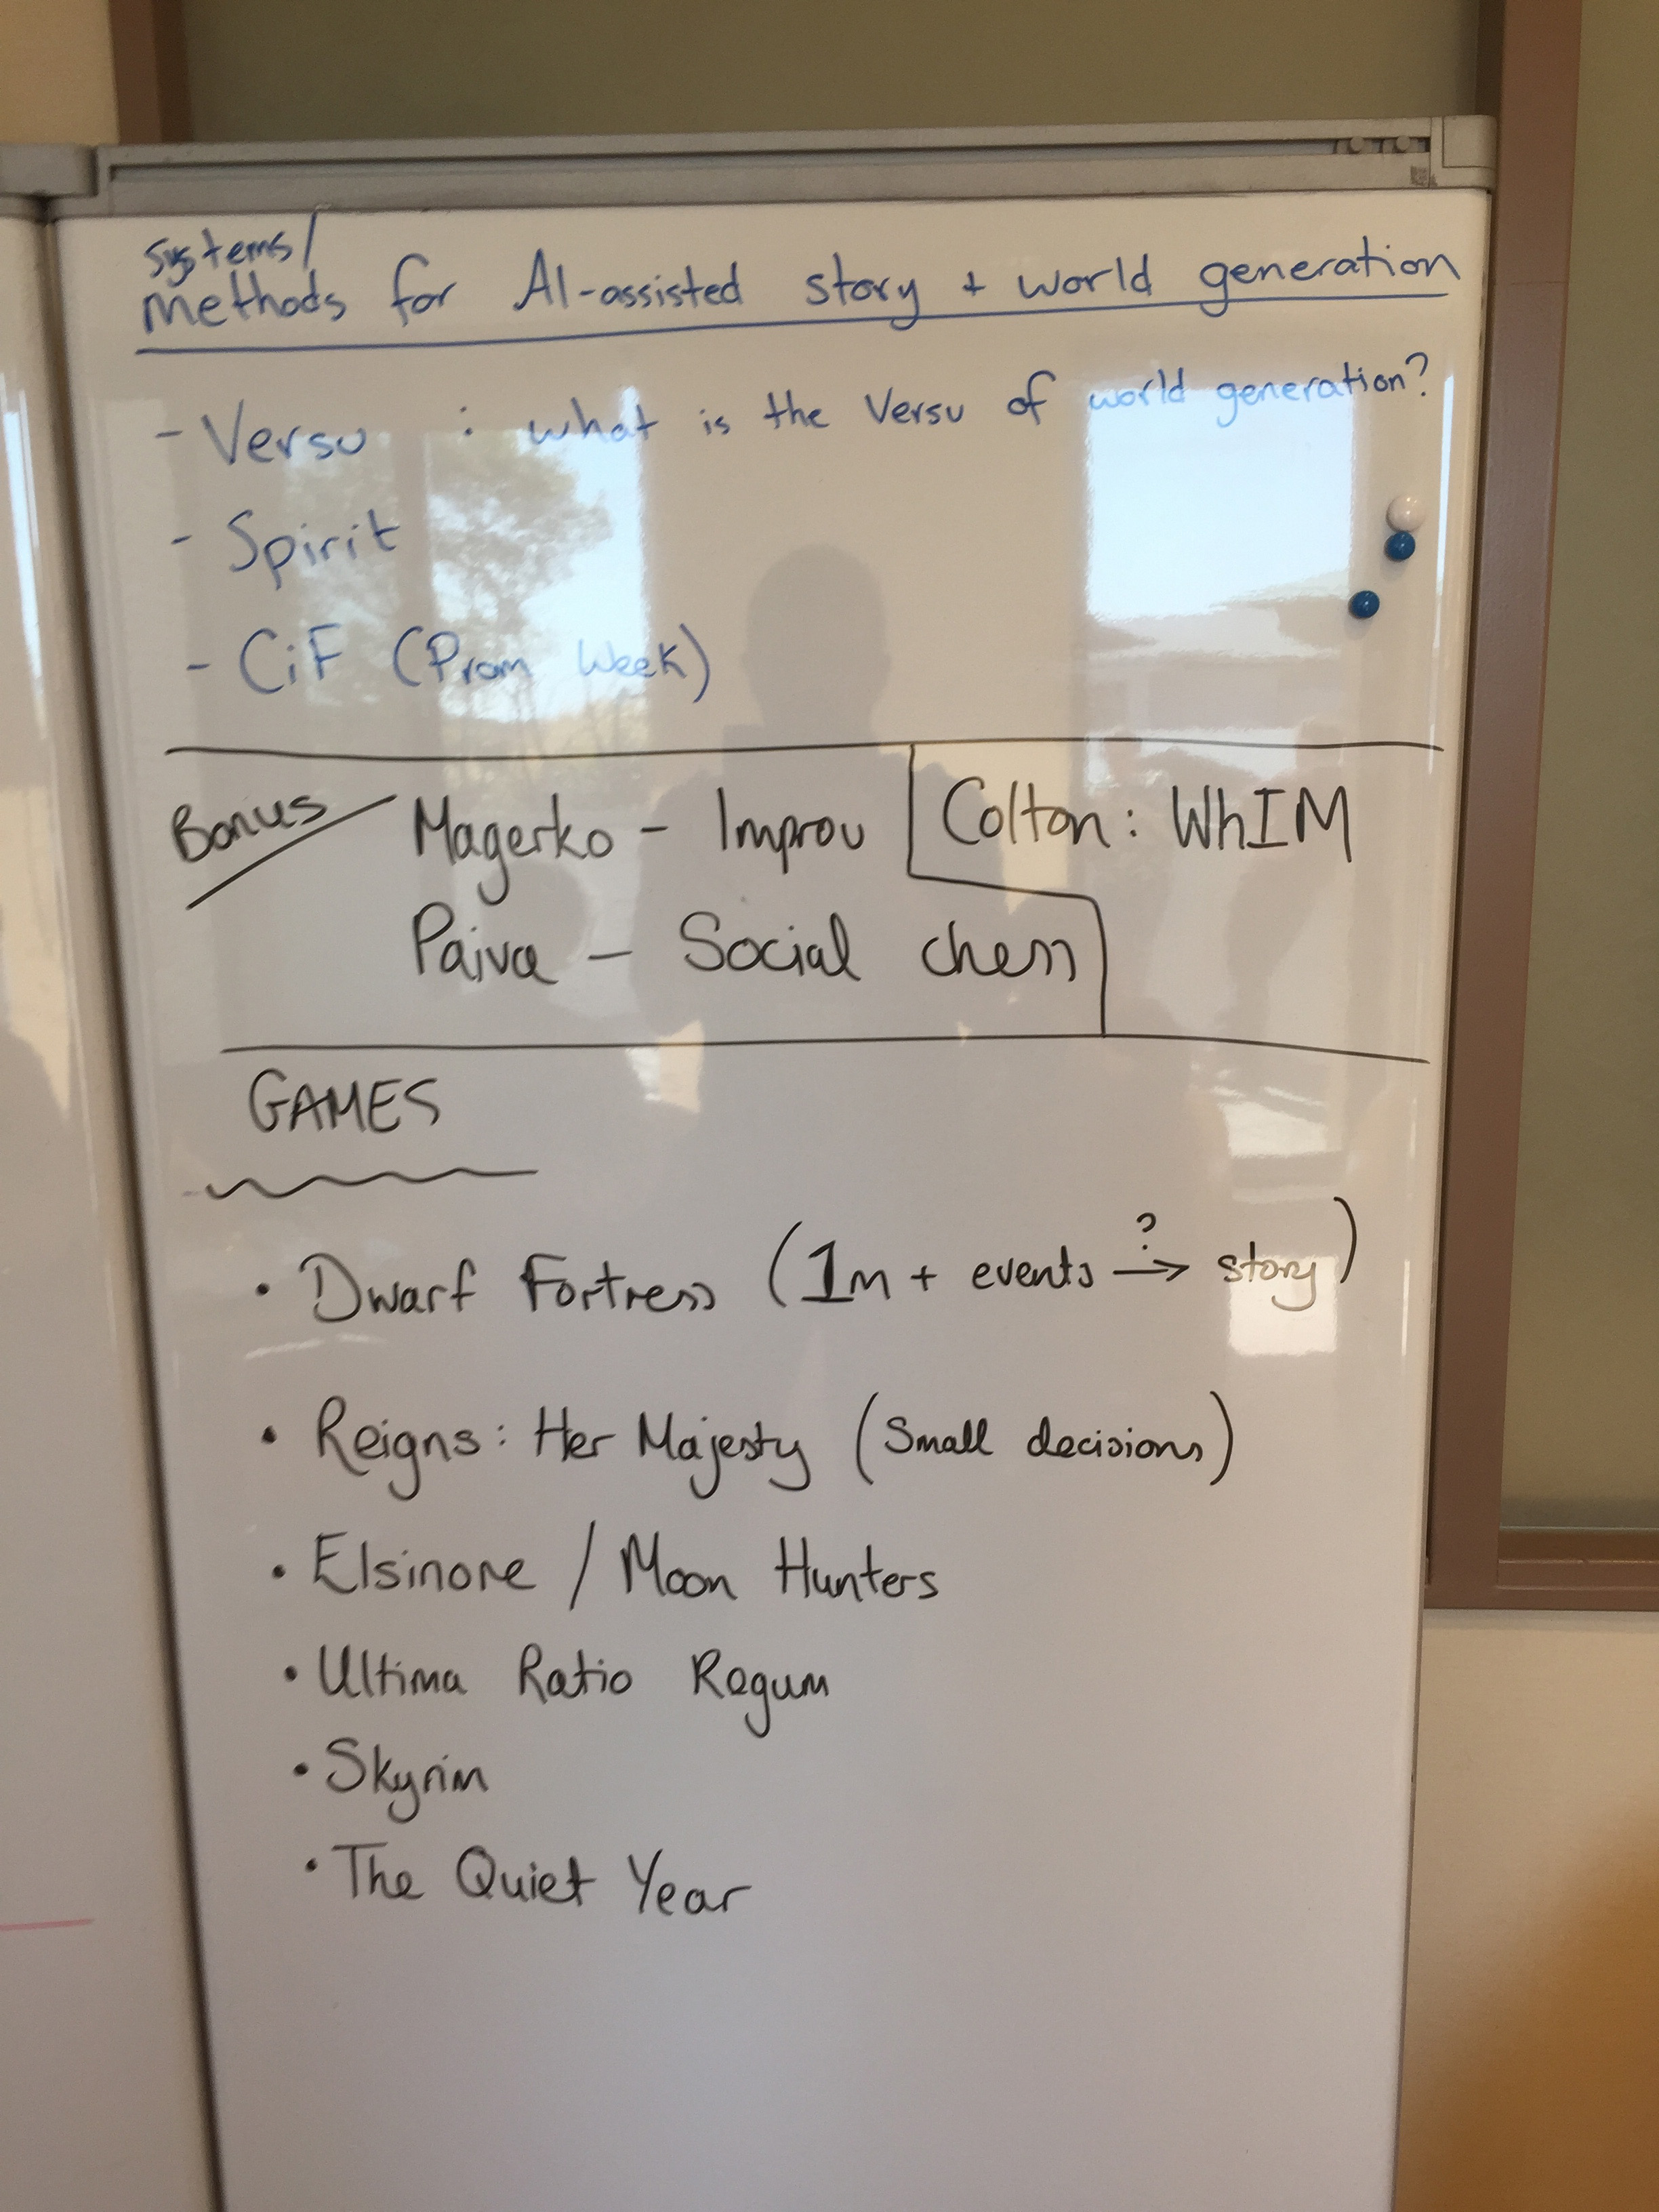 Systems/
Methods for AI-assisted story + world generation
- Versu : what is the Versu of world generation?
- Spirit
- CiF (Prom Week)
Bonus
Magerko - Improv
Colton: WhIM
Paiva - Social chess
GAMES
• Dwarf Fortress (1m + events ?→ story)
• Reigns: Her Majesty (Small decisions)
• Elsinore / Moon Hunters
• Ultima Ratio Regum
• Skyrim
• The Quiet Year